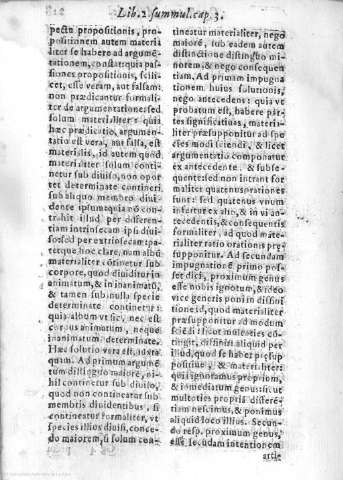 Lib. 2. summul. cap. 3.
pectu propositionis, pro-
positionem autem materia
liter se habere ad argumē-
tationem, constat: quia pas-
siones propositionis, scili-
cet, esse veram, aut falsam:
non prædicantur formali-
ter de argumentatione: sed
solum materialiter: quia
hæc prædicatio, argumen-
tatio est vera, aut falsa, est
materialis, id autem quod
materialiter solum conti-
netur sub diuiso, non opor
tet determinate contineri
sub aliquo membro diui-
dente
trahit illud per differen-
tiam intrinsecam ipsi diui-
so: sed per extrinsecam: pa-
tet que hoc clare, nam albū
materialiter cōtinetur sub
corpore, quod diuiditur in
animatum, & in inanimatū,
& tamen sub nulla specie
determinate continetur:
quia album vt sic, nec est
corpus animatum, neque
inanimatum determinate.
Hæc solutio vera est, ad for
mam. Ad primum argumē-
tum distinguo maiorē, ni-
hil continetur sub diuiso,
quod non contineatur sub
membris diuidentibus, si
contineatur formaliter, vt
species illius diuisi, conce-
do maiorem, si solum con-
tineatur materialiter, nego
maiorē, sub eadem autem
distinctione distinguo mi-
norem, & nego consequen
tiam. Ad primam impugna
tionem huius solutionis,
nego antecedens: quia vt
probatum est, habere par-
tes significatiuas, materia-
liter præsupponitur ad spe-
cies modi sciendi, & licet
argumentatio componatur
ex antecedente, & subse-
quente: sed non intrant for
maliter quatenus orationes
sunt: sed quatenus vnum
infertur ex alio, & in vi an-
tecedentis, & consequentis
formaliter, ad quod mate-
rialiter ratio orationis præ-
supponitur. Ad secundam
impugnationē primo pos-
set dici, proximum genus
esse nobis ignotum, & ideo
vice generis poni in diffini
tione id, quod materialiter
præsupponitur ad modum
sciēdi: sicut molesties cō-
tingit, diffiniri aliquid per
illud, quod se habet præsup
positiue, & materialiter:
quia ignoramus proprium,
& immediatum genus: si ut
multoties propriā differen
tiam nescimus, & ponimus
aliquid loco illius. Secun-
do resp. proximum genus,
esse secundam intentionem
artis